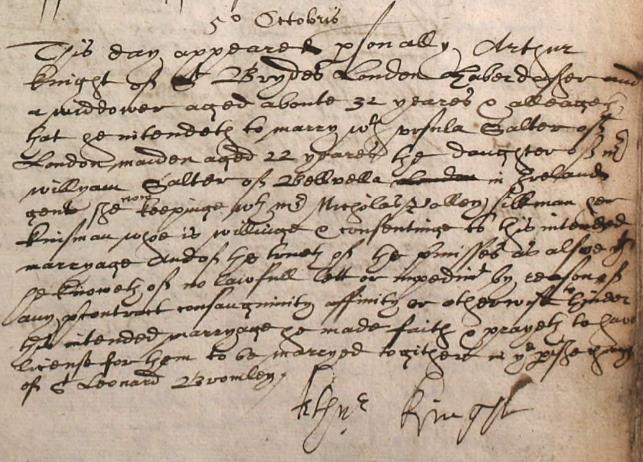 5o Octobris
This day appeared psonally Arthur
Knight of St Brydes London haberdasher and
a widdower aged aboute 32 yeares & alleageth
that he intendeth to marry wth Ursula Salter of
London maiden aged 22 yeares the daughter of mr
willyam Salter of London in Ireland
gent she now keepinge wth mr Nicholas silkman her
kinsman whoe is willinge & consentinge to this intended
marryage And of the trueth of the pmisses as alsoe yt
he knoweth of no lawfull lett or impedimt by reason of
any pcontract consanguinity affinity or otherwise to hinder
this intended marryage he made faith & prayeth to have
license for them to be marryed togither in ye pishe church
of St Leonard Bromley
Arthur Knight